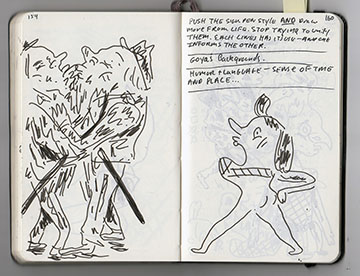 159
160
PUSH THE PEN STYLE AND DRAW
MORE FROM LIFE. STOP TRYING TO UNIFY
THEM. EACH LINES HAS ITS OWN - AND ONE
INFORMS THE OTHER.
GOYAS Backgrounds.
HUMOR + LANGUAGE - SENSE OF TIME
AND PLACE...